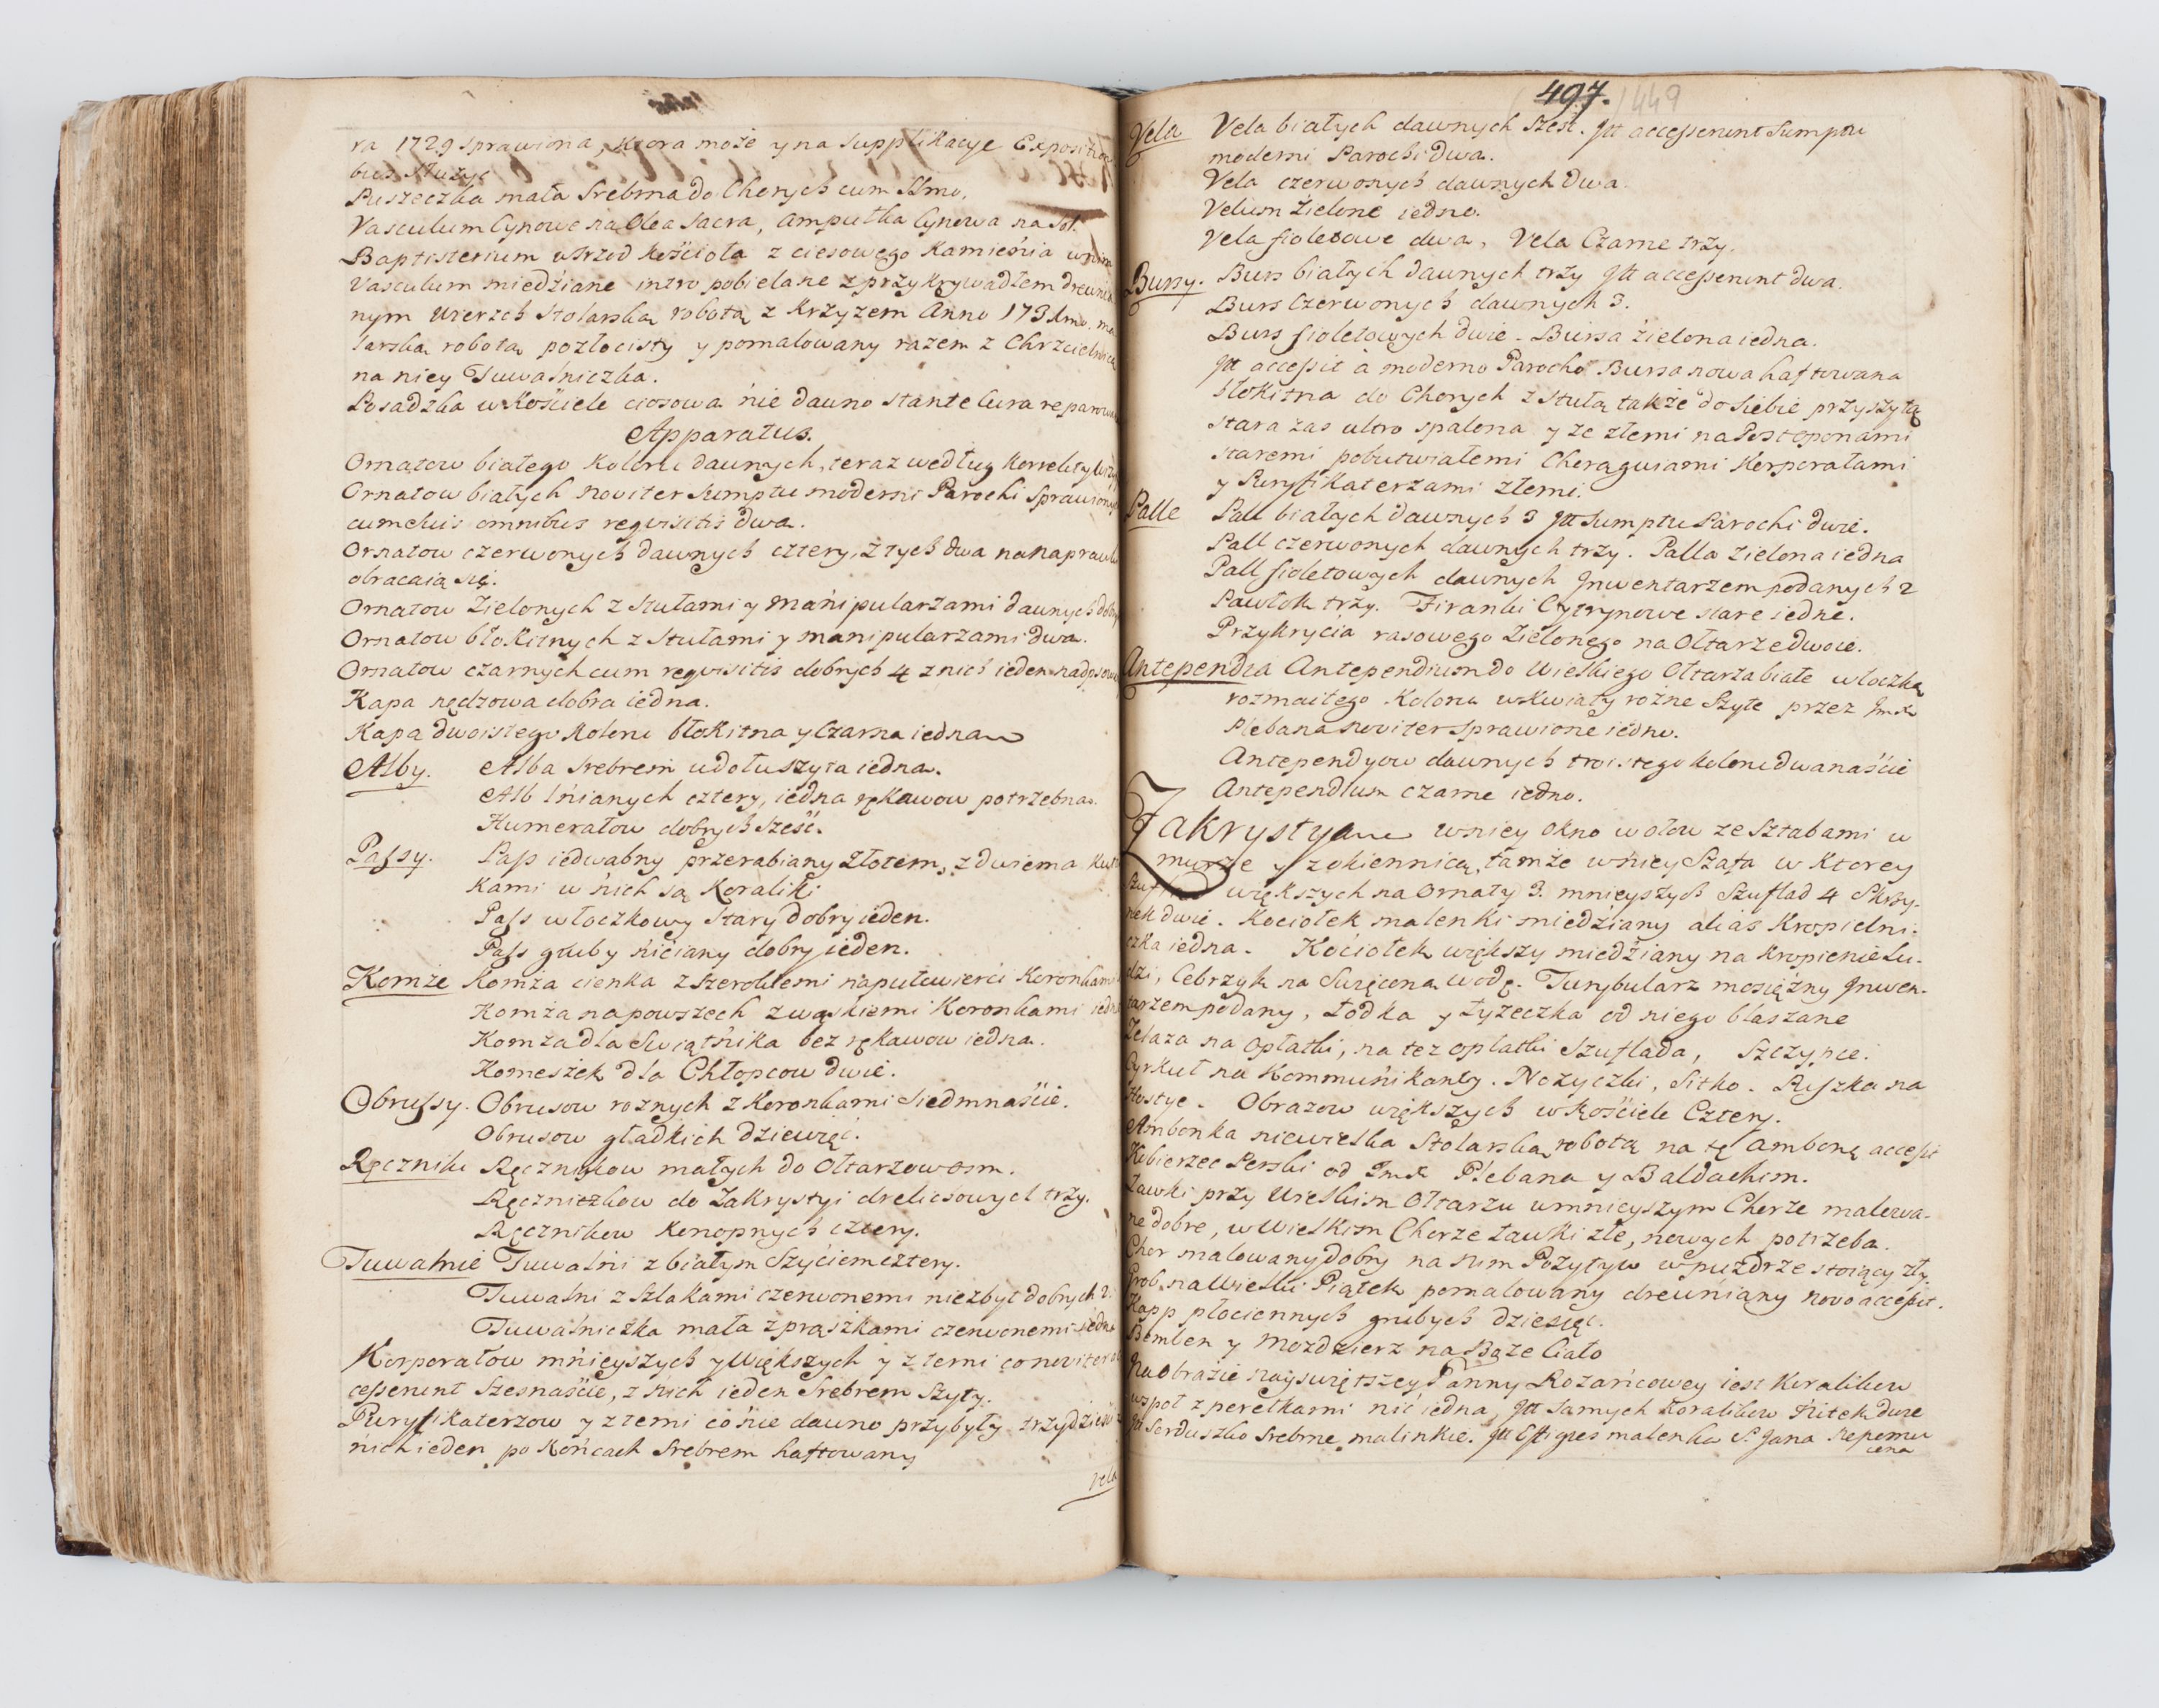 ra 1729 sprawiona, ktora może y na Supplikacye Exposition
bus służyć
Puszeczka mała Srebrna do Chorych cum SSmo.
Vasculum Cynowe na Olea Sacra, Ampułka Cynowa na Sol.
Baptisterium wsrzod kościoła z ciosowego Kamienia w nim
Vasculum miedźiane intro pobielane z przykrywadłem drewnia
nym Wierzch Stolarską robotą z Krzyzem Anno 173 ma
larską robotą pozłocisty y pomalowany razem z Chrzcielnicą
na niey Tuwalniczka.
Posadzka w Kościele ciosowa nie dawno stante Cura reparow
Apparatus.
Ornatow białego Koloru dawnych, teraz według
Ornatow białych noviter Sumptu moderni Parochi Sprawionych
cum omnibus requisitis dwa.
Ornatow czerwonych dawnych cztery, z tych dwa na naprawie
obracaią się.
Ornatow Zielonych z Stułami y Manipularzami dawnych
Ornatow błokitnych z Stułami y manipularzami dwa.
Ornatow czarnych cum requisitis dobrych 4 z nich ieden nadpsowa
Kapa rędzowa dobra iedna.
Kapa dwoistego Koloru błokitna y Czarna iedna
Alby. Alba Srebrem u dołu szyta iedna.
Alb lnianych cztery, iedna rękawow potrzebna.
Humerałow dobrych sześć.
Passy. Pass iedwabny przerabiany Złotem, z dwiema
kami w nich są Koraliki
Pass włoczkowy stary dobry ieden.
Pass gruby niciany dobry ieden.
Komże Komża cienka z szerokiemi na pułcwierci Koronkami
Komża na powszech z wąskiemi Koronkami iedna
Komża dla Swiątnika bez rękawow iedna.
Komeszek dla Chłopcow dwie.
Obrussy. Obrusow roznych z Koronkami Siedmnaście.
Obrusow gładkich dziewięć.
Ręczniki Ręcznikow małych do Ołtarzow osm.
Ręczniczkow do Zakrystyi drelicowych trzy.
Ręcznikow Konopnych cztery.
Tuwalnie Tuwalni z białym Szyciem cztery.
Tuwalni z Szlakami czerwonemi niezbyt dobrych 2.
Tuwalniczka mała z prążkami czerwonemi iedna
Korporałow mnieyszych y Większych y z temi co noviter ac
cesserunt Szesnaście, z nich ieden Srebrem Szyty.
Puryfikaterzow y z temi co nie dawno przybyły trzydzieści
nich ieden po Końcach Srebrem haftowany
Vela
497. 449
Vela Vela białych dawnych sześć. Itt accesserunt Sumptu
moderni Parochi dwa.
Vela czerwonych dawnych dwa
Velum Zielone iedno.
Vela fioletowe dwa, Vela Czarne trzy.
Bursy. Burs białych dawnych trzy Itt accesserunt dwa.
Burs Czerwonych dawnych 3.
Burs fioletowych dwie. Bursa źielona iedna.
Itt accessit à moderno Parocho Bursa nowa haftowana
błokitna do Chorych z Stułą także do siebie przyszytą
Stara zas ultro spalona y ze złemi na Post oponami
Staremi pobutwiałemi Chorągwiami Korporałami
y Puryfikaterzami złemi.
Palle Pall białych dawnych 3 Itt Sumptu Parochi dwie.
Pall czerwonych dawnych trzy. Palla zielona iedna
Pall fioletowych dawnych Inwentarzem podanych 2
Pawłok trzy. Firanki Cytrynowe stare iedne.
Przykrycia rasowego Zielonego na Ołtarze dwoie.
Antependia Antependium do Wielkiego Ołtarza białe włoczką
rozmaitego Koloru w Kwiaty rozne Szyte przez Jmx
Plebana noviter sprawione iedno.
Antependyow dawnych troistego koloru dwanaście
Antependium czarne iedno.
Zakrystya w niey okno w ołow ze sztabami w
murze y z okiennicą, tamże w niey Szafa w Ktorey
Szuflad większych na Ornaty 3. mnieyszych Szuflad 4 Skrzy-
nek dwie. Kociołek malenki miedziany aliàs Kropielni-
czka iedna. Kociołek większy miedźiany na kropienie Lu-
dzi, Cebrzyk na Swięconą wodę. Turybularz mosiężny Inwen-
tarzem podany, Łodka y łyżeczka od niego blaszane
Żelaza na opłatki, na też opłatki Szuflada, Szczypce.
Cyrkuł na Kommunikanty. Nożyczki, Sitko. Puszka na
Hostye. Obrazow większych w Kościele Cztery.
Ambonka niewielka Stolarską robotą na tę Ambonę accessit
Kobierzec Perski od Jmx Plebana y Baldachim.
Ławki przy Wielkim Ołtarzu w mnieyszym Chorze malowa-
ne dobre, w Wielkim Chorze Ławki złe, nowych potrzeba.
Chor malowany dobry na nim Pozytyw w puzdrze stoiący zły.
Grob na Wielki Piątek pomalowany drewniany novo accessit.
Kapp płociennych grubych dziesięć.
Bemben y Mozdzierz na Boże Ciało
Na Obrazie Nayswiętszey Panny Rozańcowey iest Koralikow
wspoł z perełkami nić iedna, Itt Samych Koralikow Nitek dwie
Itt Serduszko Srebrne malinkie. Itt Effigies malenka S. Jana Nepomu
cena